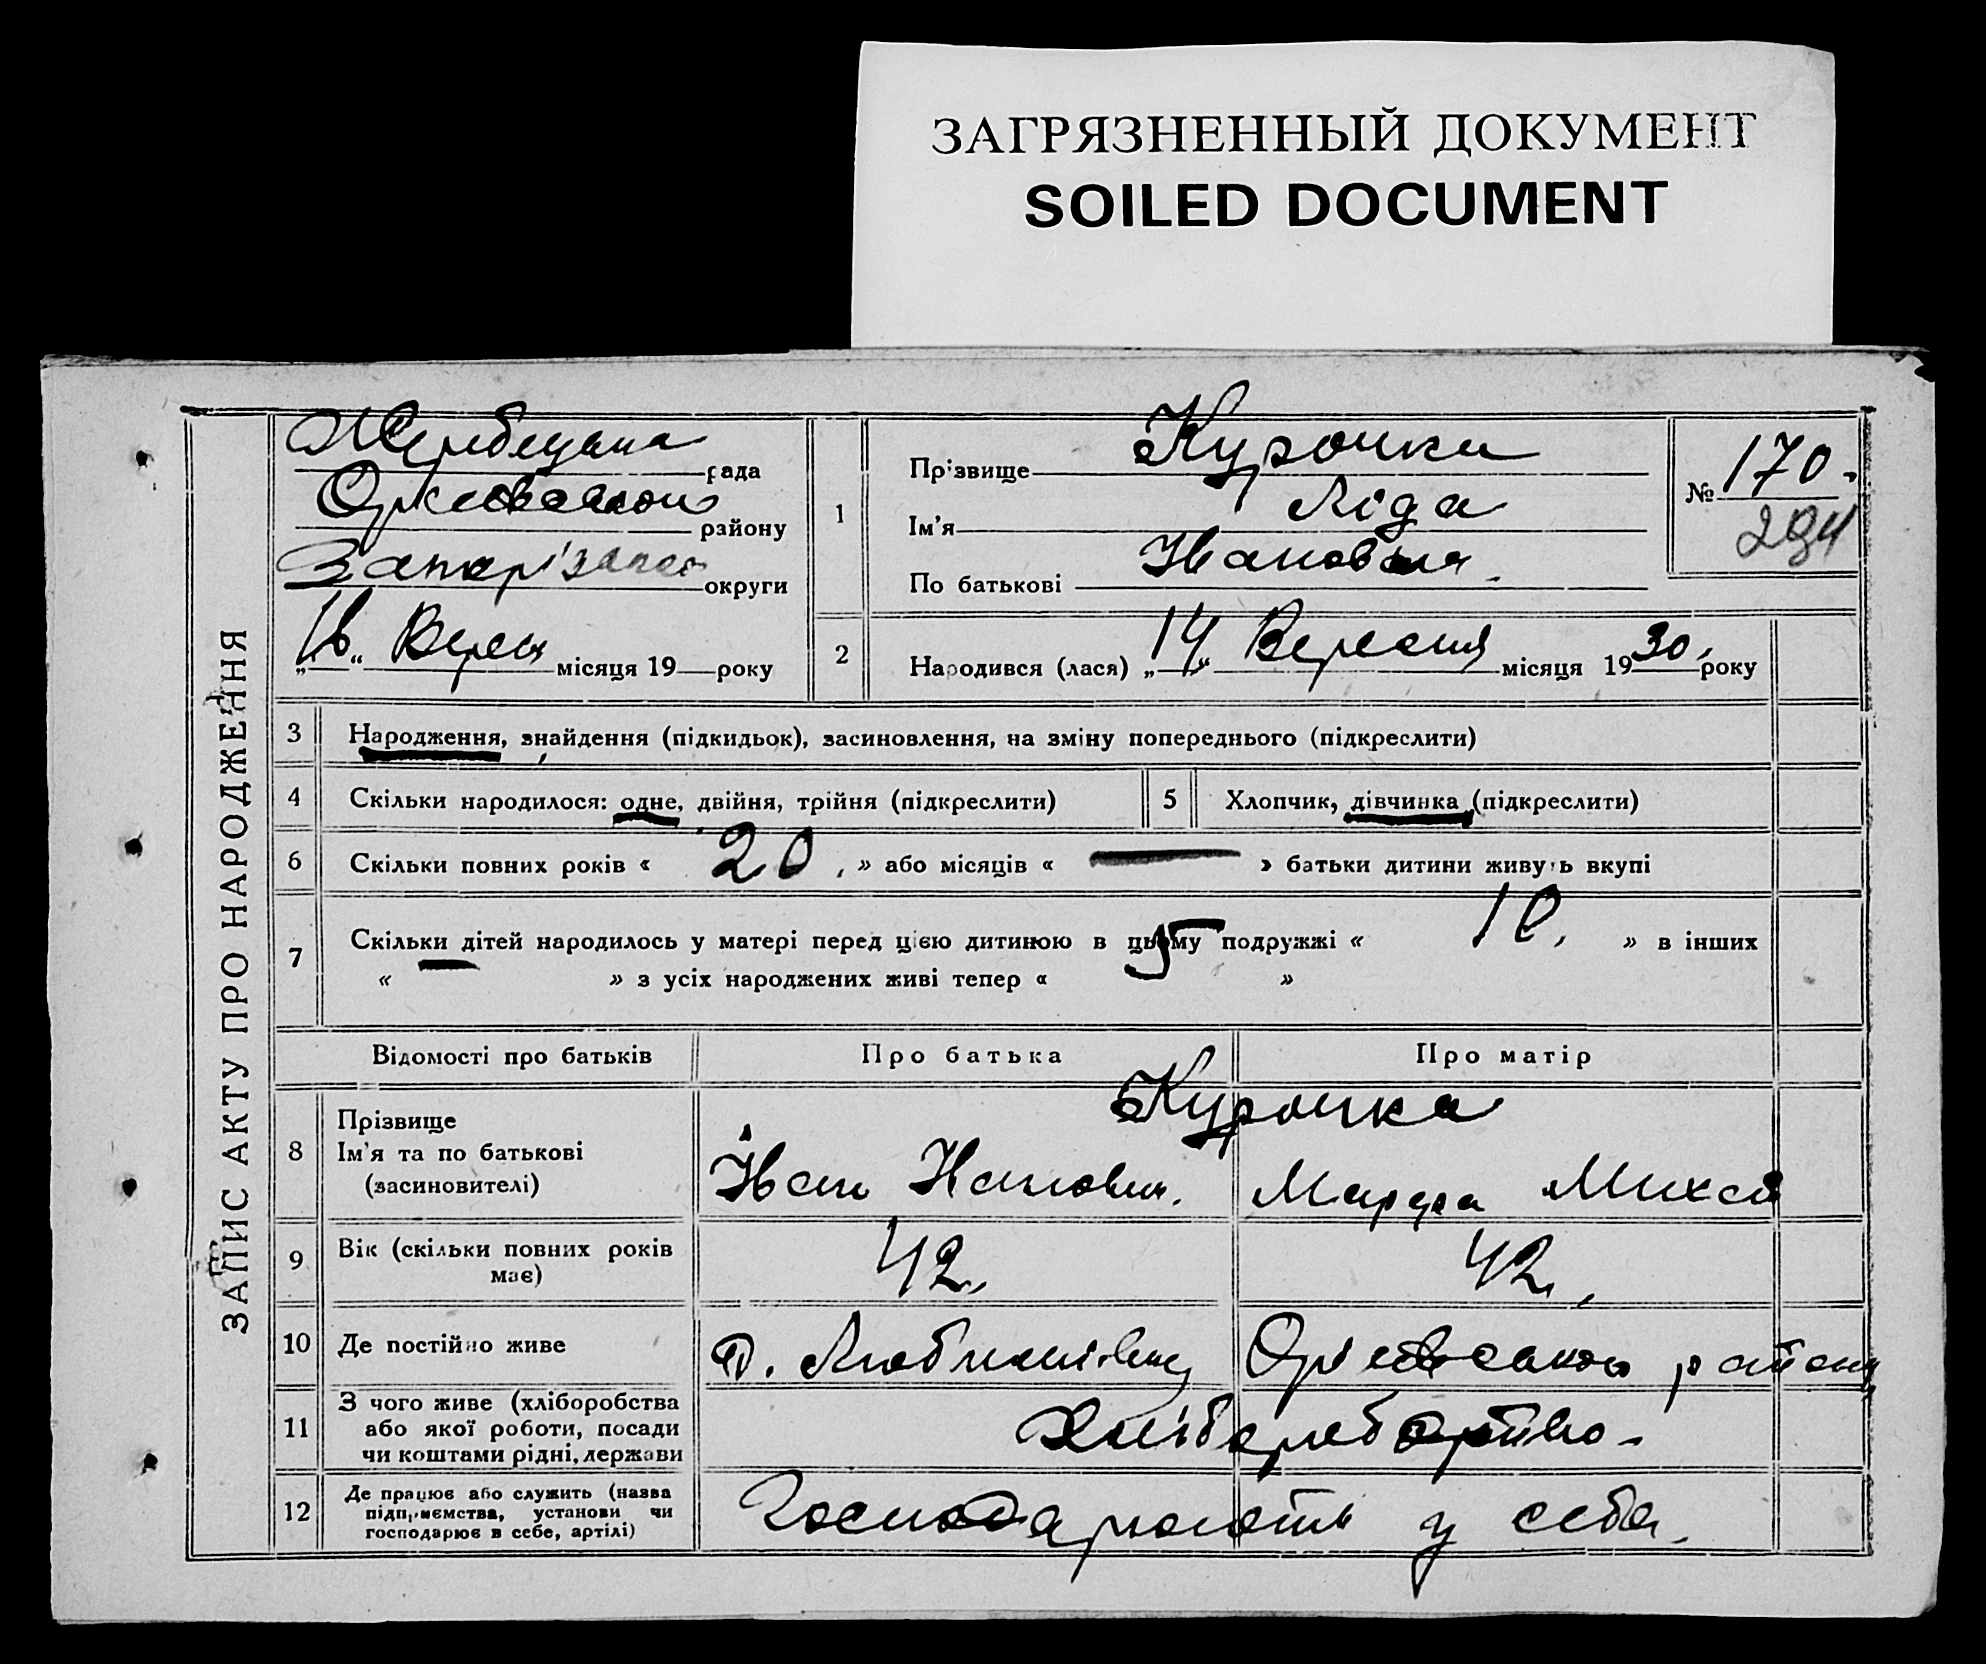 ЗАГРЯЗНЕННЫЙ ДОКУМЕНТ
SOILED DOCUMENT
ЗАПИС АКТУ ПРО НАРОДЖЕННЯ
рада
району
округи
„16“ Верес місяця 19 року
1
Прізвище Курочки
Ім'я Ліда
По батькові Івановна
№ 170
294
2
Народився (лася) „14“ Вересня місяця 1930 року
3 Народження, знайдення (підкидьок), засиновлення, на зміну попереднього (підкреслити)
4 Скільки народилося: одне, двійня, трійня (підкреслити)
5 Хлопчик, дівчинка (підкреслити)
6 Скільки повних років « 20 » або місяців « — » батьки дитини живуть вкупі
7 Скільки дітей народилось у матері перед цією дитиною в цьому подружжі « 10 » в інших
« — » з усіх народжених живі тепер « 5 »
Відомості про батьків Про батька Про матір
8 Прізвище Курочка
Ім'я та по батькові Іван Іванович. Марфа Михай
(засновителі)
9 Вік (скільки повних років 42. 42,
має)
10 Де постійно живе Оріевського району
11 З чого живе (хліборобства
або якої роботи, посади Хліборобство
чи коштами рідні, держави
12 Де працює або служить (назва
підприємства, установи чи Господарюють у себе.
господарює в себе, артілі)